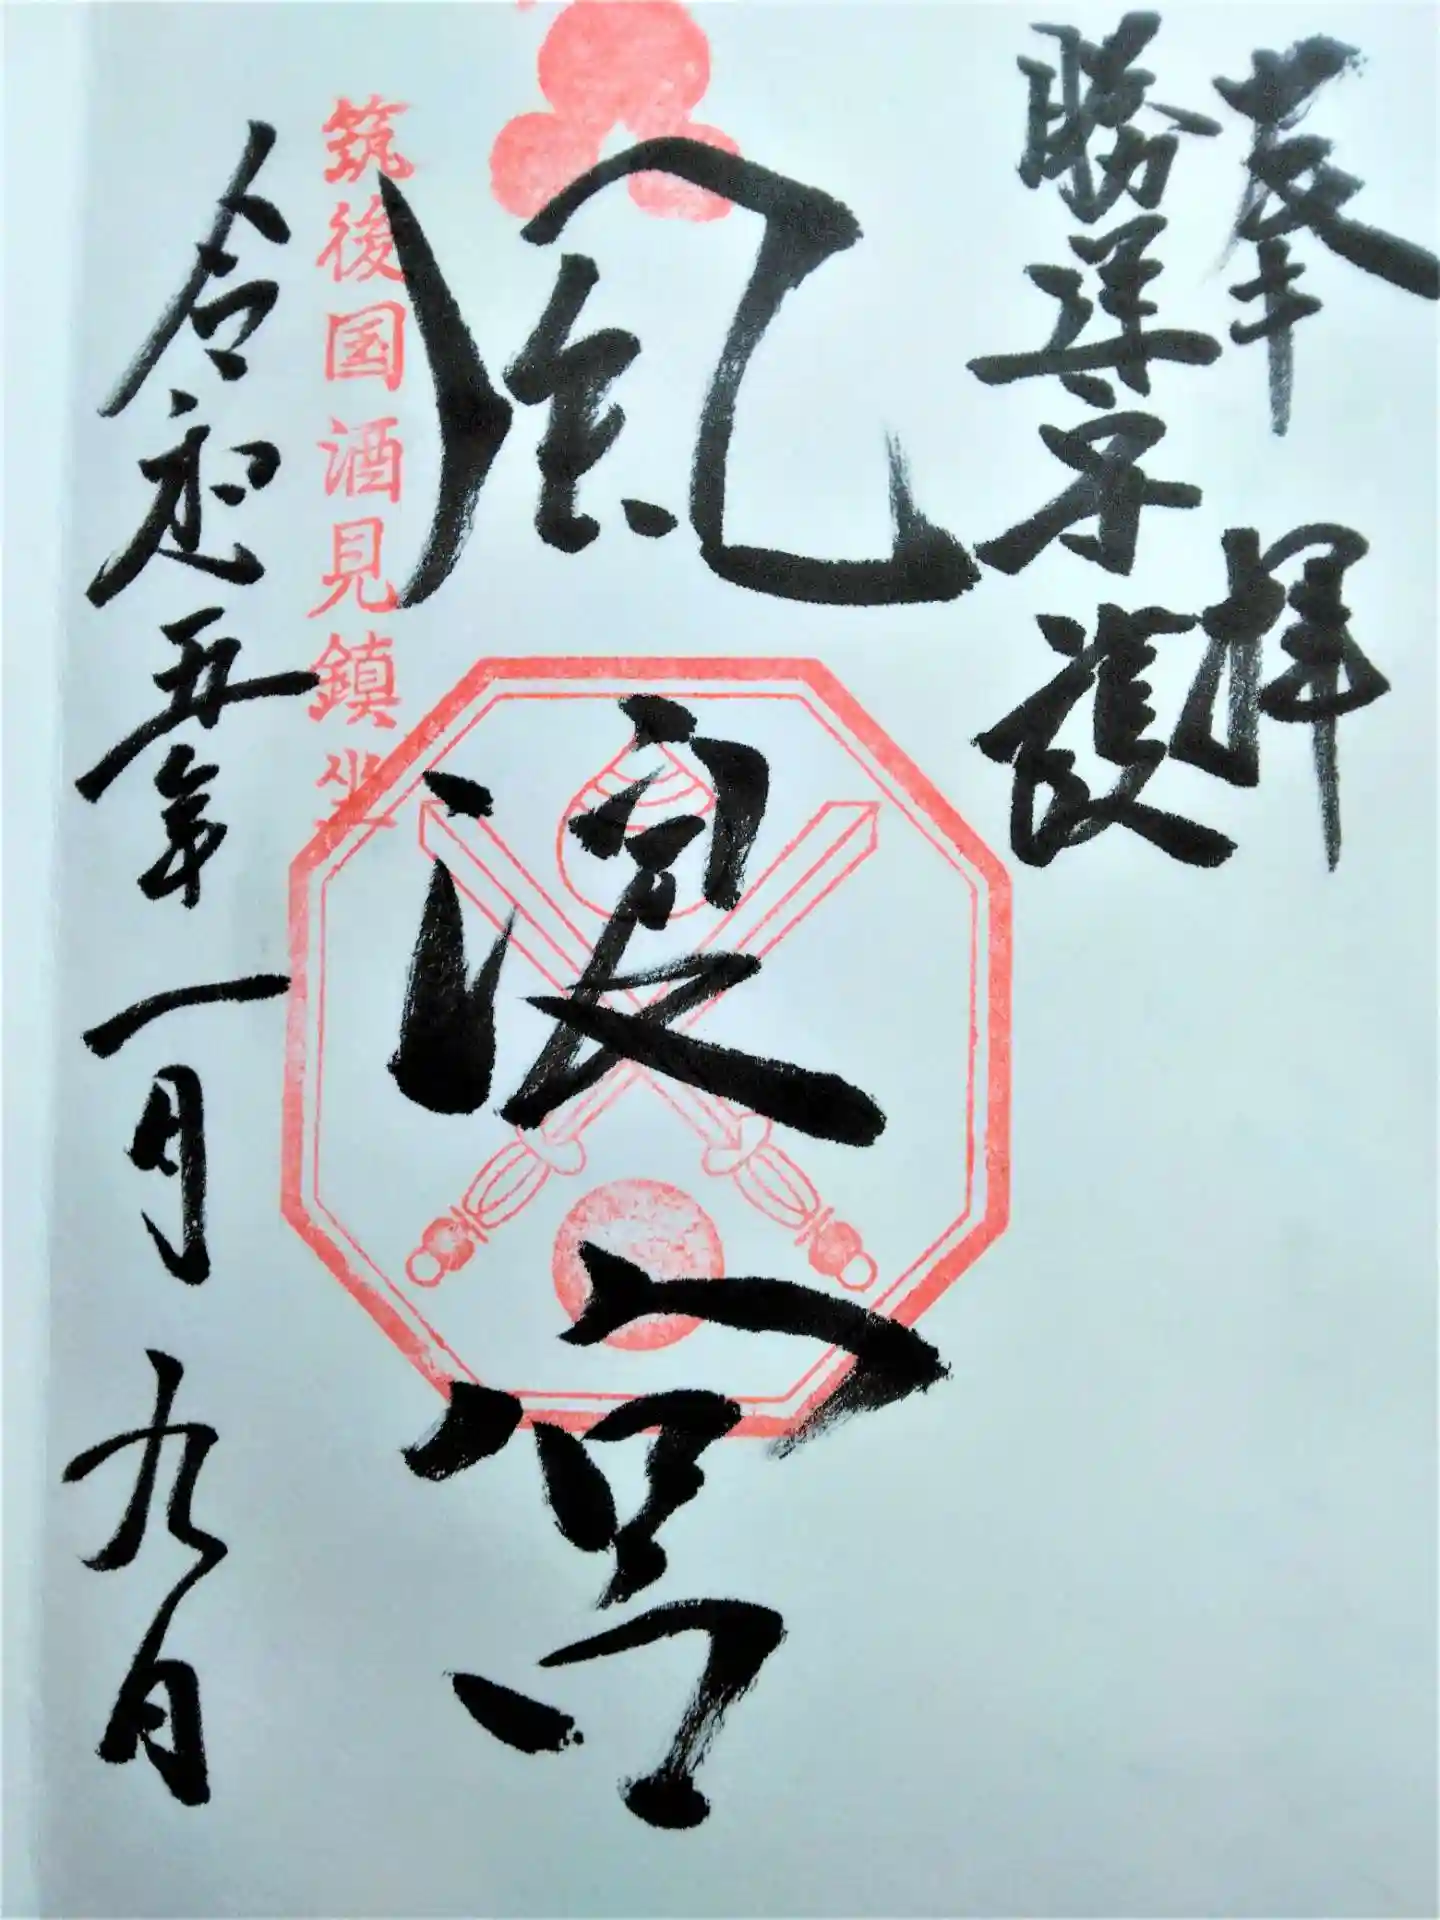 奉拝
勝運守護
風浪宮
筑後国酒見鎮坐
令和五年一月九日